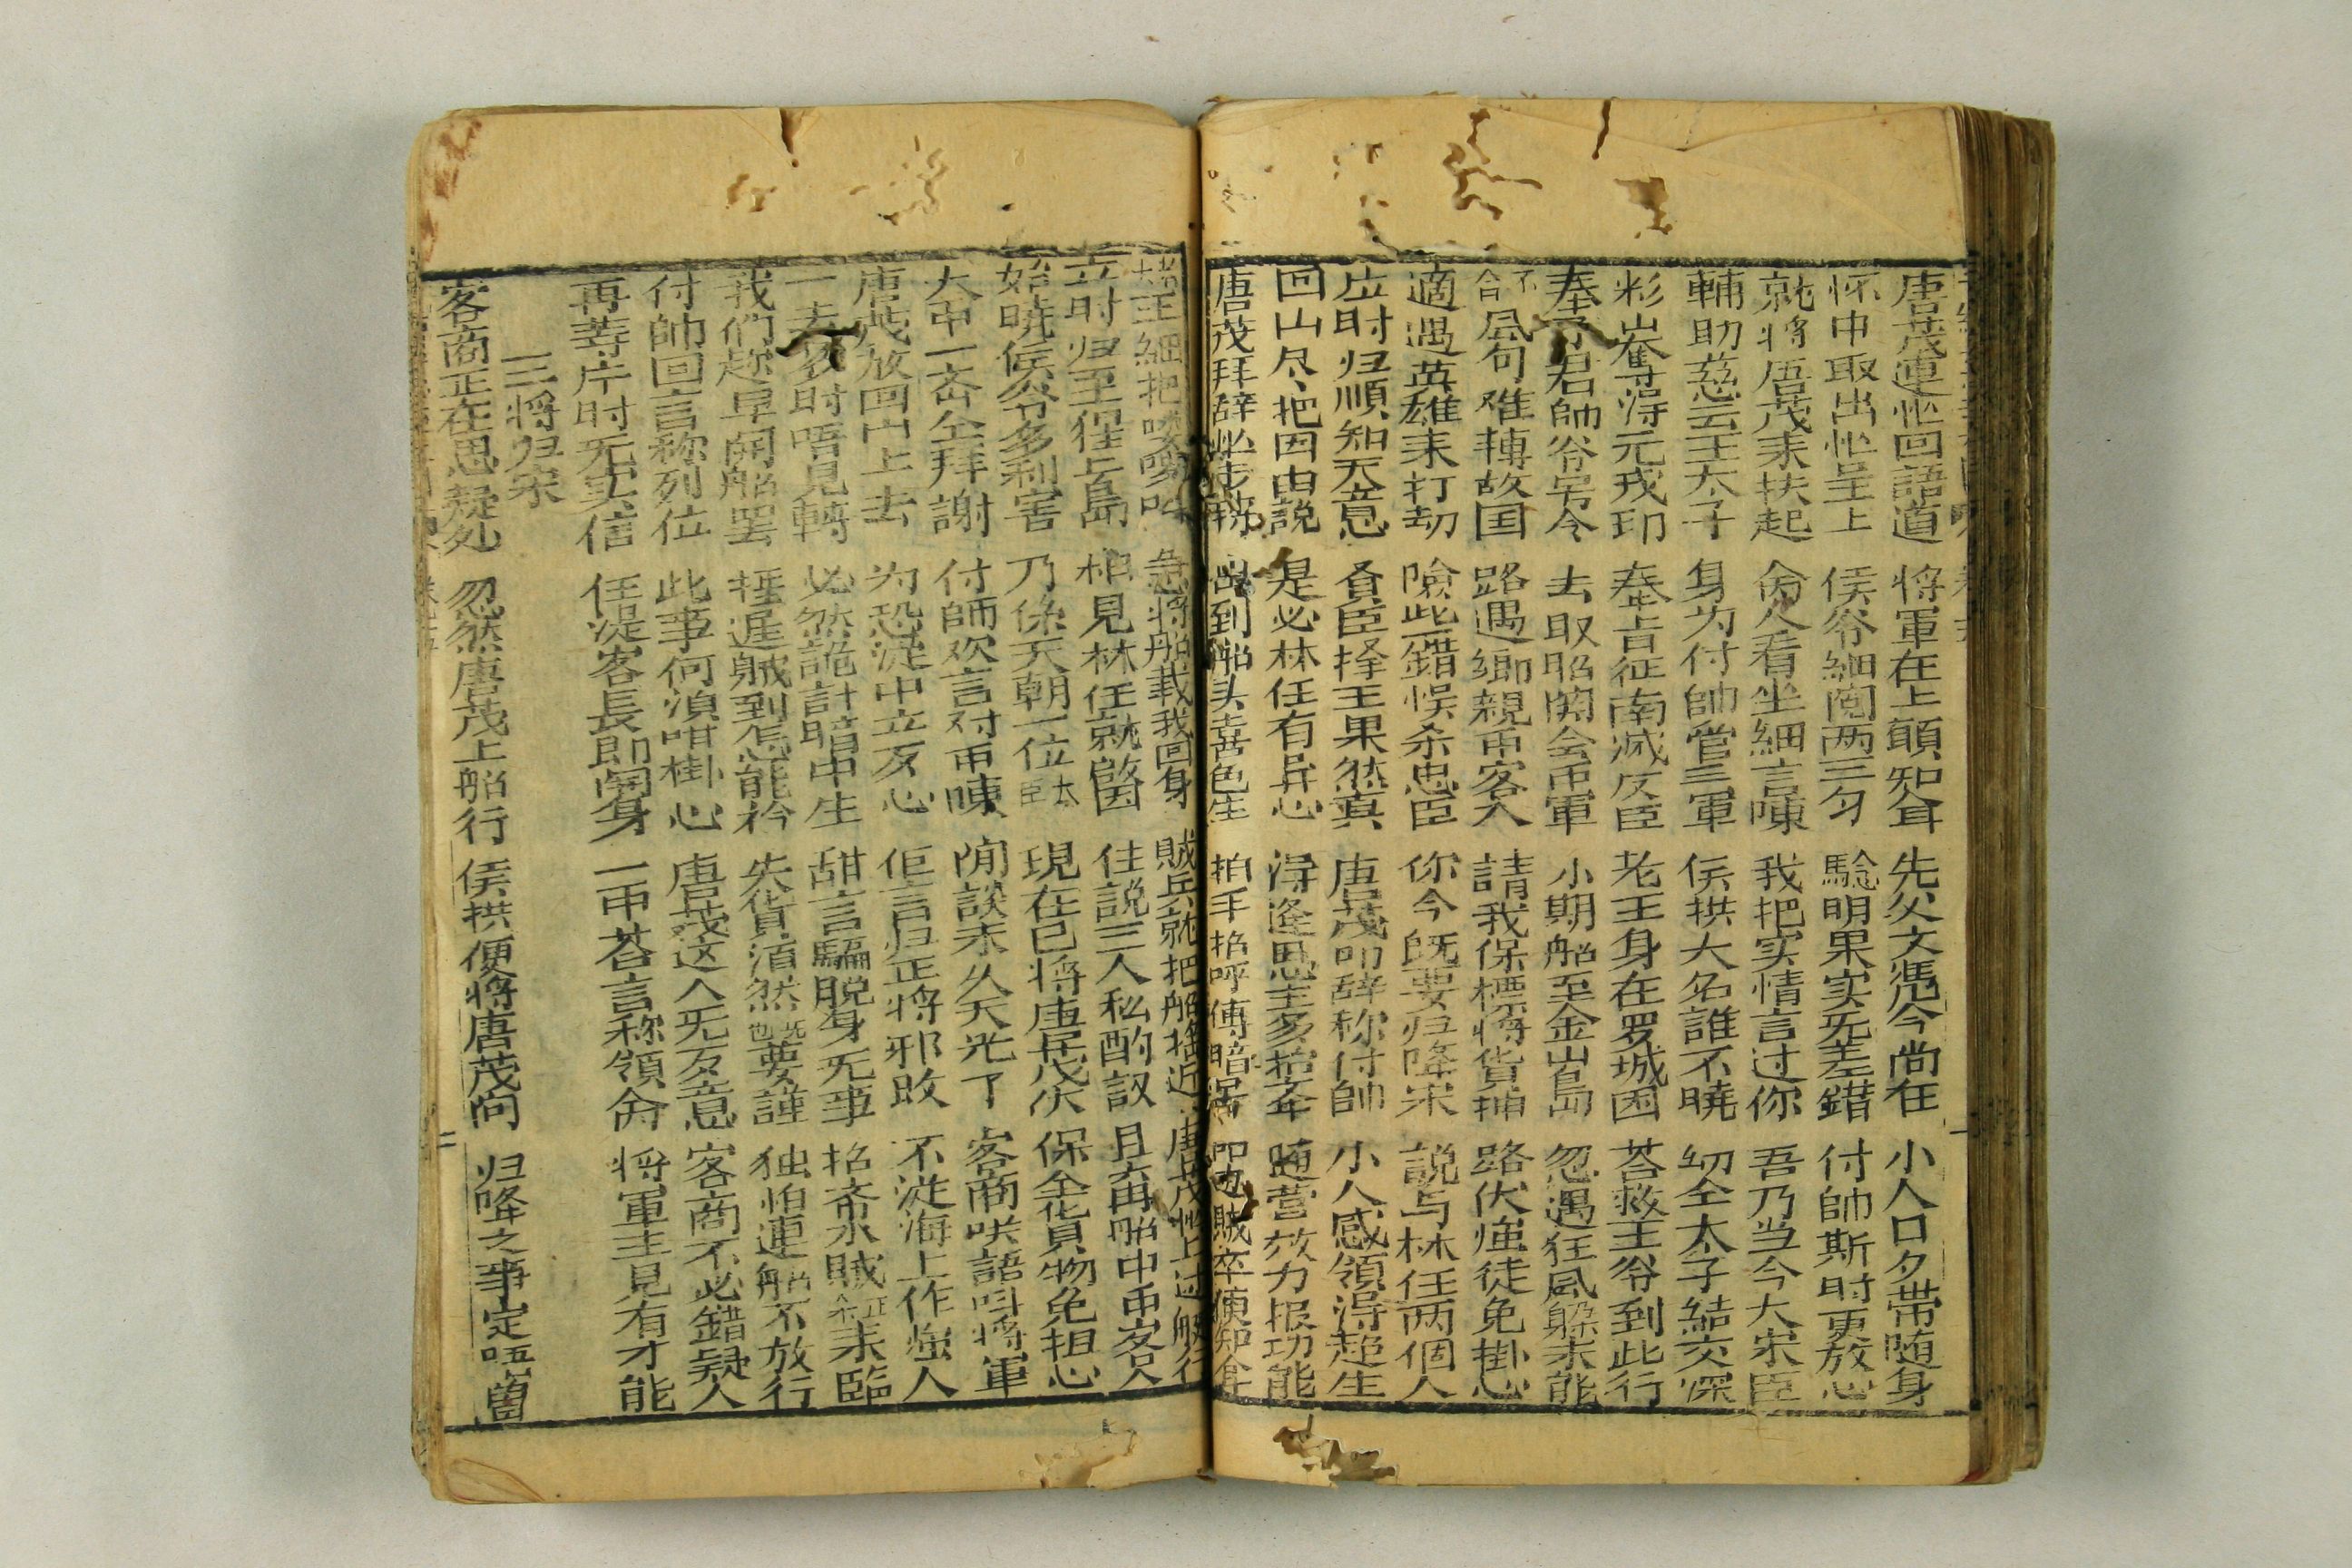 唐茂連忙回語道 將軍在上願知耳 先父文憑今尚在 小人口夕帶随身
怀中取出忙呈上 侯爷細閲两三勻 驗明果实旡差錯 付帥斯时更放心
就将唐茂耒扶起 俞人看坐細言陳 我把实情言过你 吾乃当今大宋臣
輔助慈云王太子 身为付帥管三軍 侯拱大名誰不曉 幼仝太子結交深
彩山奪得元戎印 奉旨征南滅反臣 老王身在罗城困 荅救王爷到此行
奉了君帥爷号令 去取昭関会帀軍 小期船至金山島 忽遇狂風躲未能
不合風句难轉故国 路遇鄉親帀客人 請我保標將貨押 路伏强徒免掛心
適遇英雄耒打刧 險此一錯悮杀忠臣 你今旣要归降宋 說与林任两個人
应时归順知天意 貪臣擇王果然真 唐茂叩辞称付帥 小人感領得超生
回山尽把因由說 是必林任有异心 得逢恩主多抬 随营效力报功能
唐茂拜辞忙走 到船头喜色生 拍手招呼傅暗号 賊卒便知
細把喽啰叫 急将船載我回身 賊兵就把船拪近 唐茂
立时归至猩岳島 相見林任就啓因 住說三人私酌議 且再船中帀客
始曉侯爷多利害 乃係天朝一位大臣 現在已將唐茂次 保全貨物免担心
大帀一斉仝拜謝 付師欢言对帀陳 閒談未久天光了 客商哄語呌將軍
唐茂放回山上去 为恐涯中立反心 佢言归正將邪敀 不漇海上作强人
一去多时唔見轉 必然詭計暗中生 甜言騙脱身旡事 招斉水賊耒臨
我們趂早開船罢 捱遅賊到怎能衿 失貨湏然旣也要謹 独怕連船不放行
付帥回言称列位 此事何湏咁掛心 唐茂这人旡反意 客商不必錯疑人
再等片时旡实信 任湜客長即開身 一帀荅言称領俞 將軍主見有才能
三將归宋
客商正在思疑处 忽然唐茂上船行 侯拱便將唐茂问 归降之事定唔曽